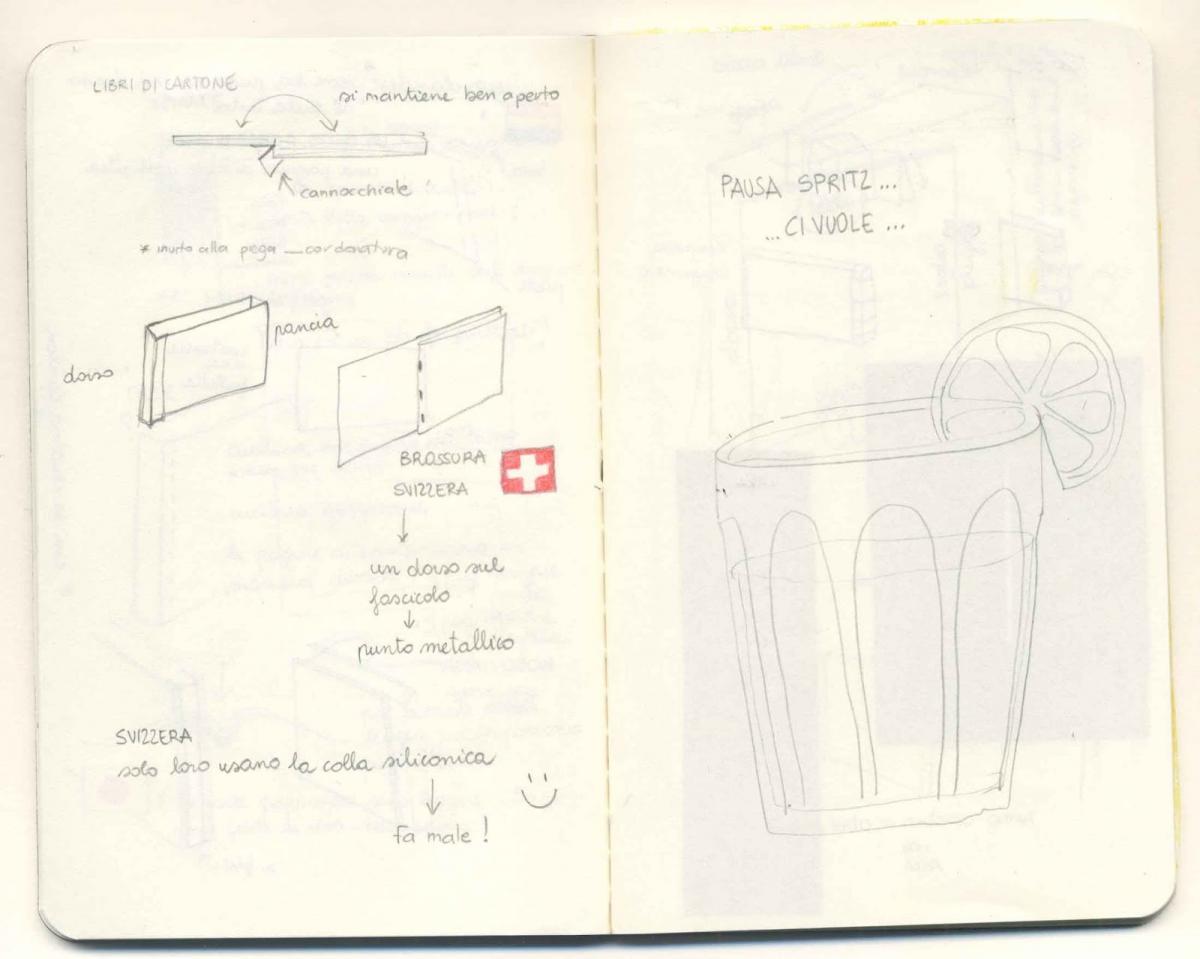 LIBRI DI CARTONE
si mantiene ben aperto
cannocchiale
* invito alla piega _ cordonatura
pancia
dorso
BROSSURA
SVIZZERA
un dorso sul
fascicolo
punto metallico
SVIZZERA
solo loro usano la colla siliconica
fa male !
PAUSA SPRITZ...
...CI VUOLE ...